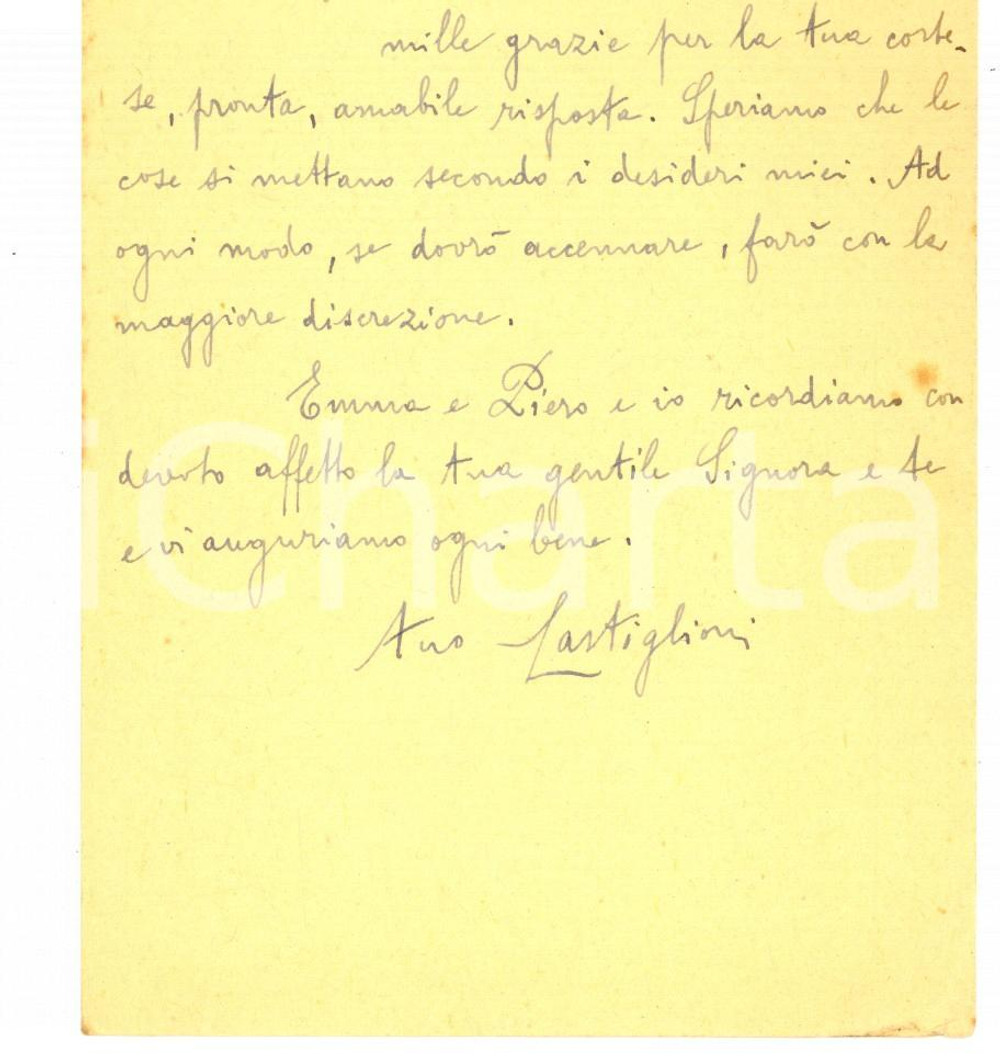 mille grazie per la tua corte-
se, pronta, amabile risposta. Speriamo che le
cose si mettano secondo i desideri miei. Ad
ogni modo, se dovrò accennare, farò con la
maggiore discrezione.
Emma e Piero e io ricordiamo con
devoto affetto la tua gentile Signora e te
e vi auguriamo ogni bene.
tuo Castiglioni